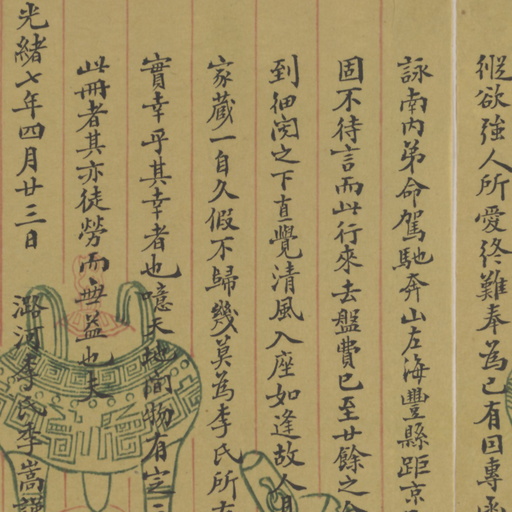 縱欲強人所愛終難奉為己有因專函
詠南内弟命駕馳奔山左海豐縣距京
固不待言而此行來去盤費已至廿餘之
到細閱之下直覺清風入座如逢故人
家藏一自久假不歸幾莫為李氏所
實幸乎其幸者也噫天地間物有定
此冊者其亦徒勞而無益也夫
光緒七年四月廿三日 潞河李氏季嵩謹